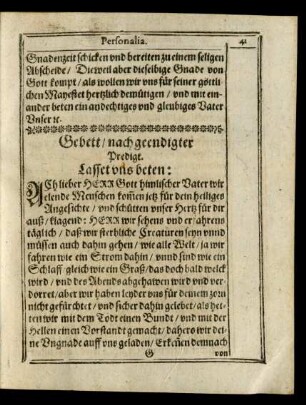 Personalia. 41
Gnadenzeit schicken vnd bereiten zu einem seligen
Abscheide / Dieweil aber dieselbige Gnade von
Gott kompt / als wollen wir vns für seiner göttli-
chen Mayestet hertzlich demütigen / vnd mit ein-
ander beten ein andechtiges vnd gleubiges Vater
Vnser ꝛc.
Gebett / nach geendigter
Predigt.
Lasset vns beten:
ACh lieber HERR Gott himlischer Vater wir
elende Menschen kom̃en jetz für dein heiliges
Angesichte / vnd schütten vnser Hertz für dir
auß / klagend: HERR wir sehens vnd er ahrens
täglich / daß wir sterbliche Creaturen seyn vnnd
müssen auch dahin gehen / wie alle Welt / ja wir
fahren wie ein Strom dahin / vnnd sind wie ein
Schlaff gleich wie ein Graß / das doch bald welck
wird / vnd des Abends abgehawen wird vnd ver-
dorret / aber wir haben leyder vns für deinem zorn
nicht gefürchtet / vnd sicher dahin gelebet / als het-
ten wir mit dem Todt einen Bundt / vnd mit der
Hellen einen Vorstandt gemacht / dahers wir dei-
ne Vngnade auff vns geladen / Erken̄en demnach
G von